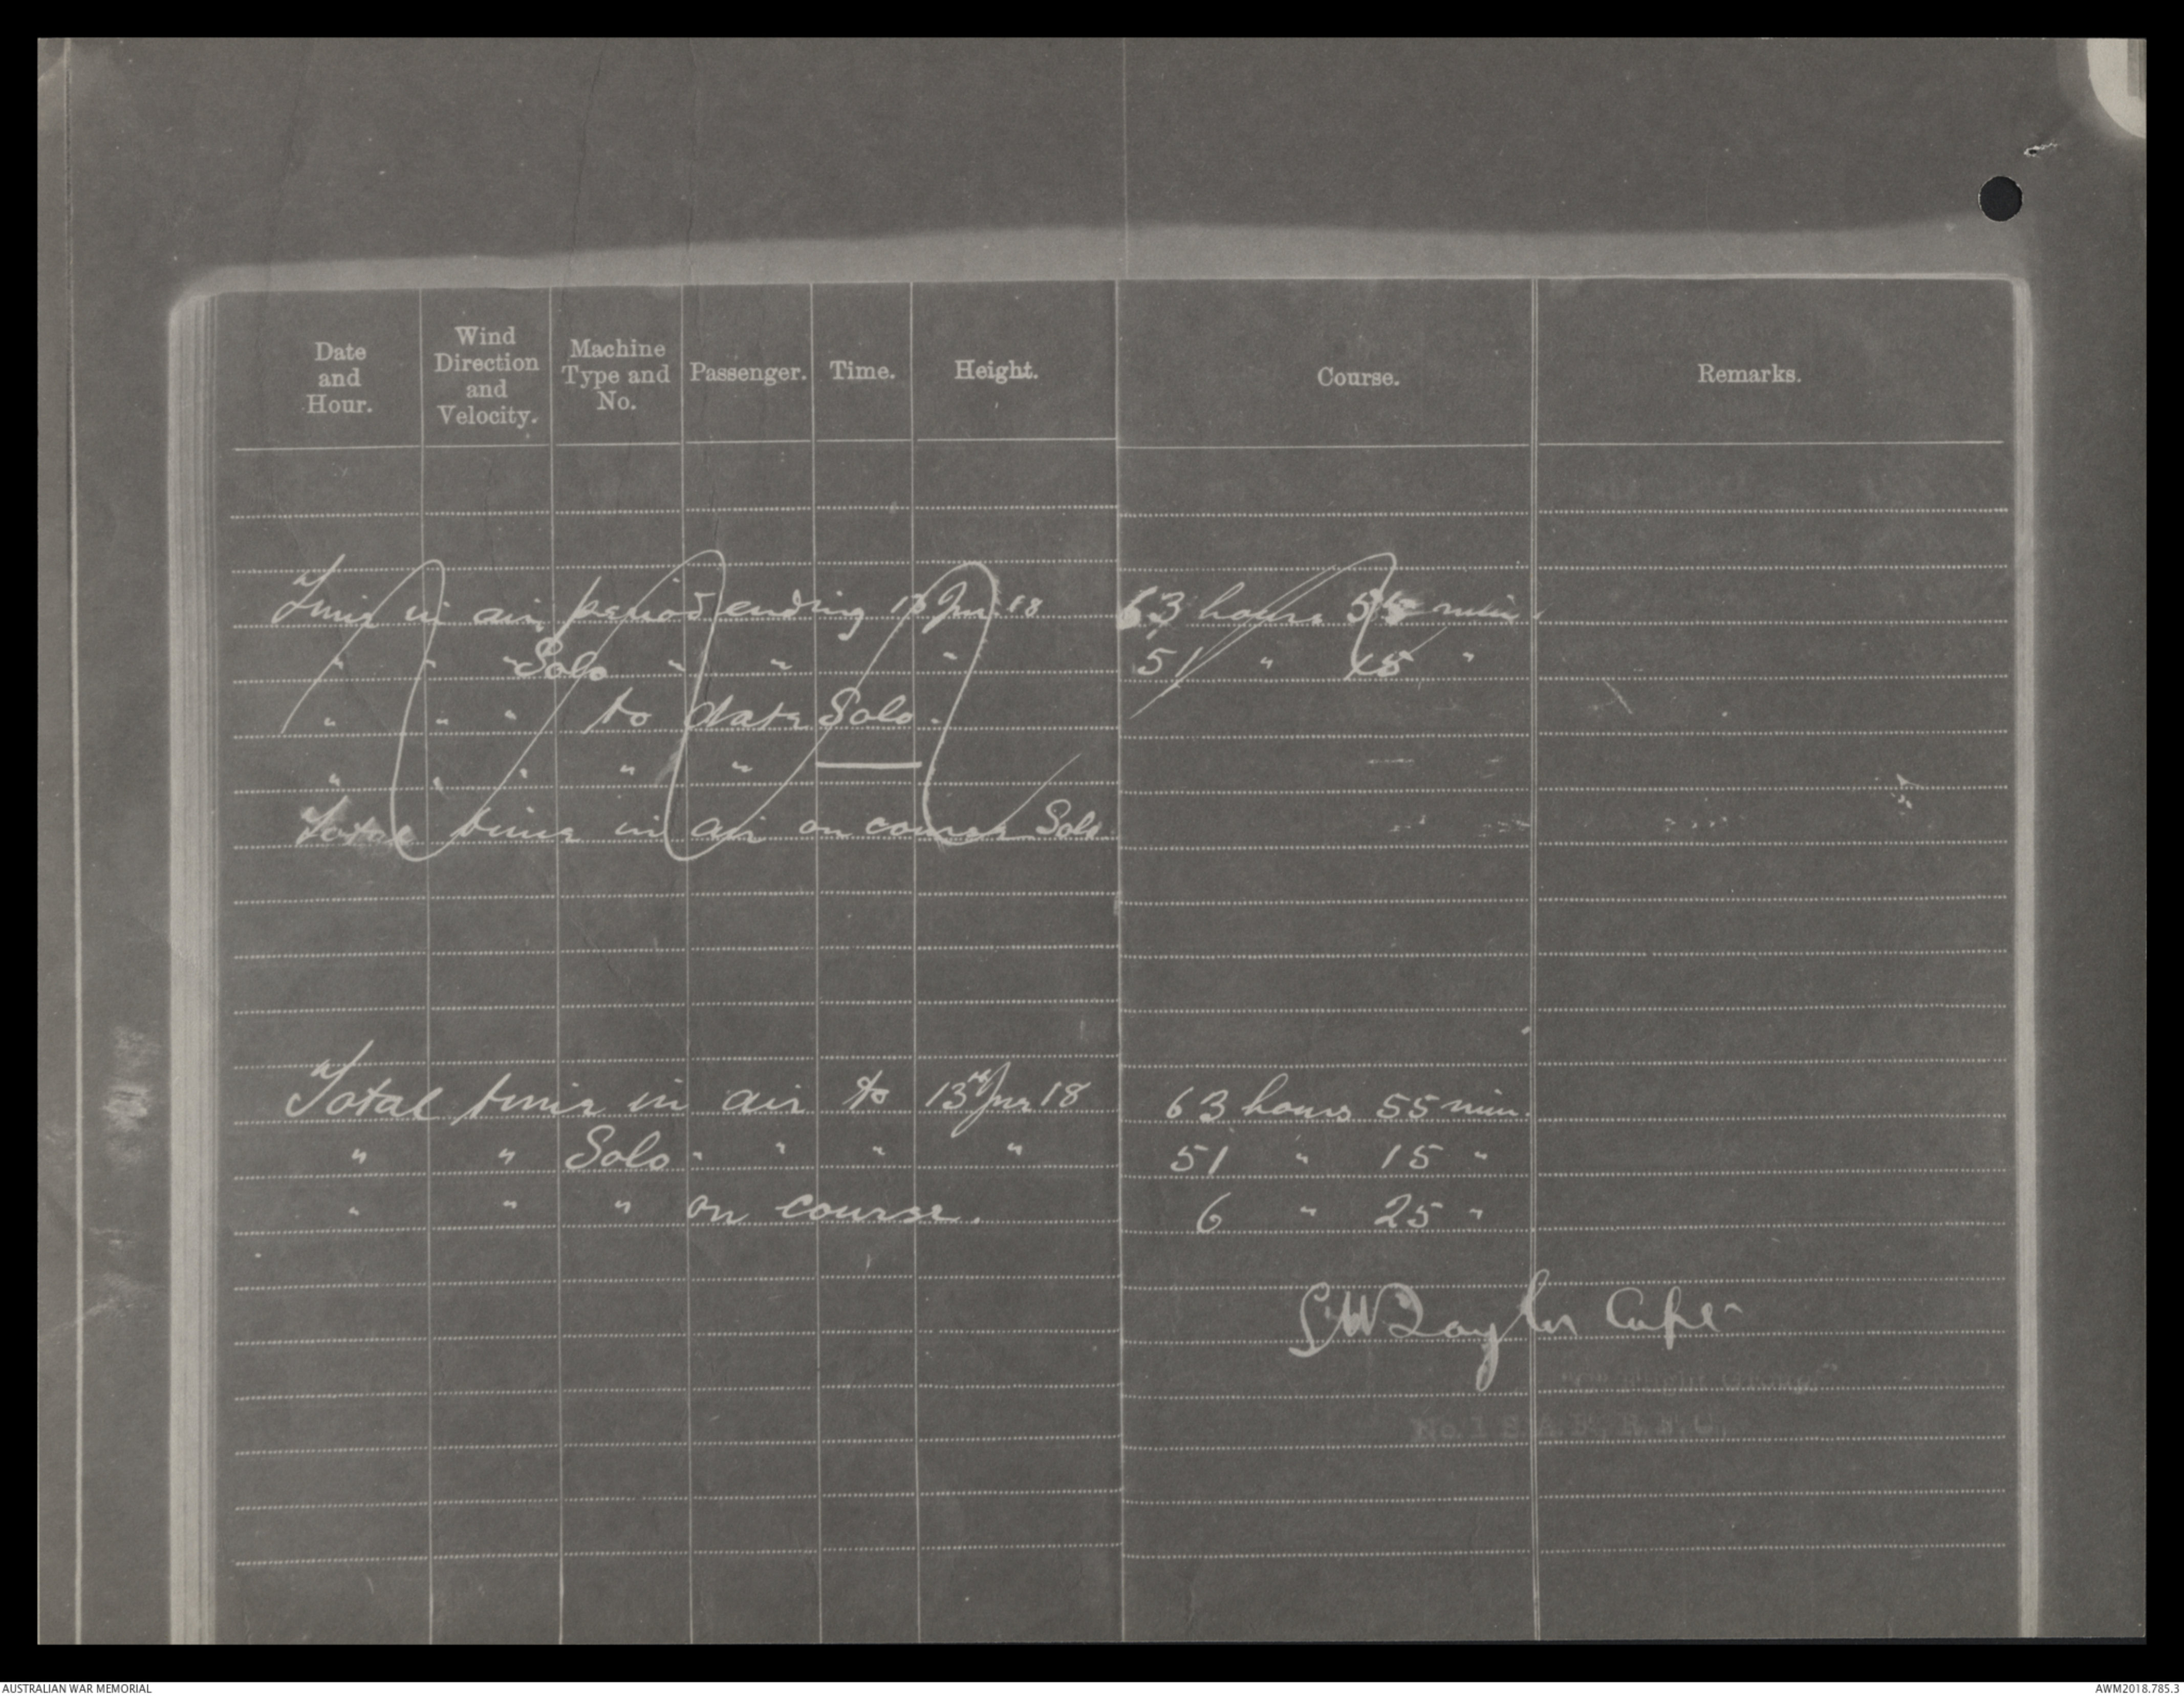 Date and Hour. Wind Direction and Velocity. Machine Type and No. Passenger. Time. Height. Course. Remarks.
Time in air period ending 13 18 63 hours 55 min.
" " " Solo " " " 51 " 15 "
" " " to date Solo.
" " " " " —
Total time in air on course Solo
Total time in air to 13th 18 63 hours 55 min.
" " Solo " " " " 51 " 15 "
" " " on course. 6 " 25 "
Taylor Capt
No. 1 S. A. F., R. F. C.
AUSTRALIAN WAR MEMORIAL
AWM2018.785.3